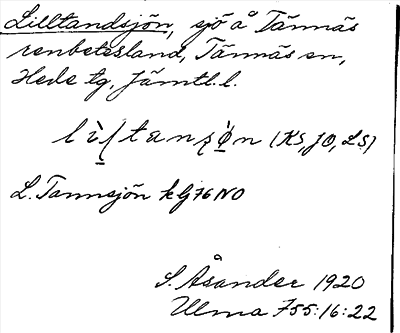 Lilltandsjön, sjö å Tännäs
renbetesland, Tännäs sn,
Hede tg, Jämtl. l.
L. Tannsjön kbj 76 NO
S. Åsander 1920
Ulma 755:16:22